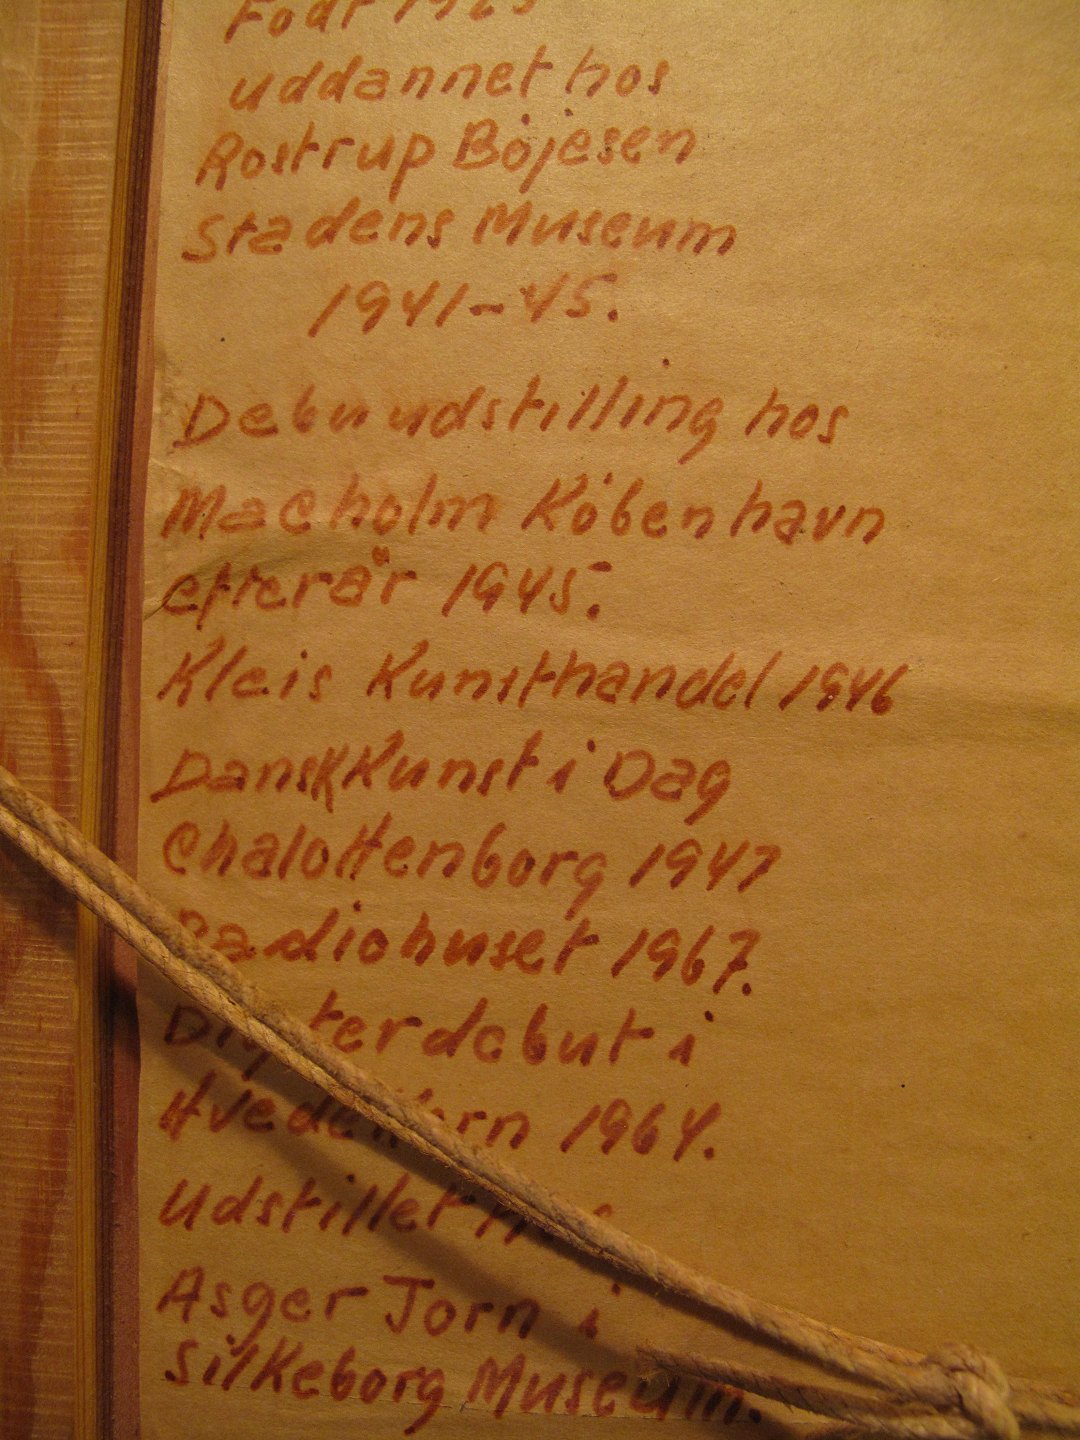 Födt 1923
uddannet hos
Rostrup Böjesen
Stadens Museum
1941-45.
Debuudstilling hos
Macholm Köbenhavn
efterår 1945.
Kleis Kunsthandel 1946
Dansk Kunst i Dag
Chalottenborg 1947
Radiohuset 1967.
Digterdebut i
Hvedekorn 1964.
Udstillet
Asger Jorn i
Silkeborg Museum.